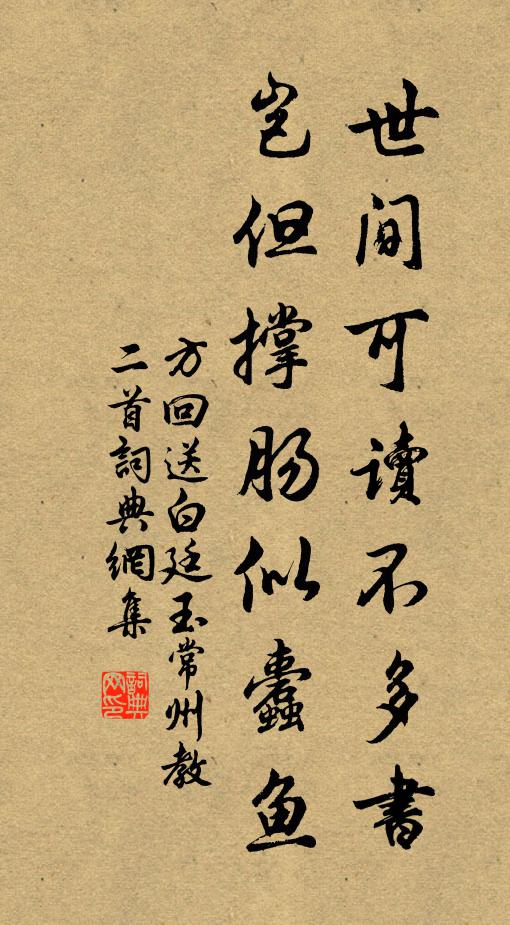 世间可讀不多書
岂但撑肠似蠹鱼
方回送白廷玉常州教
二首詞典網集
詞典网印